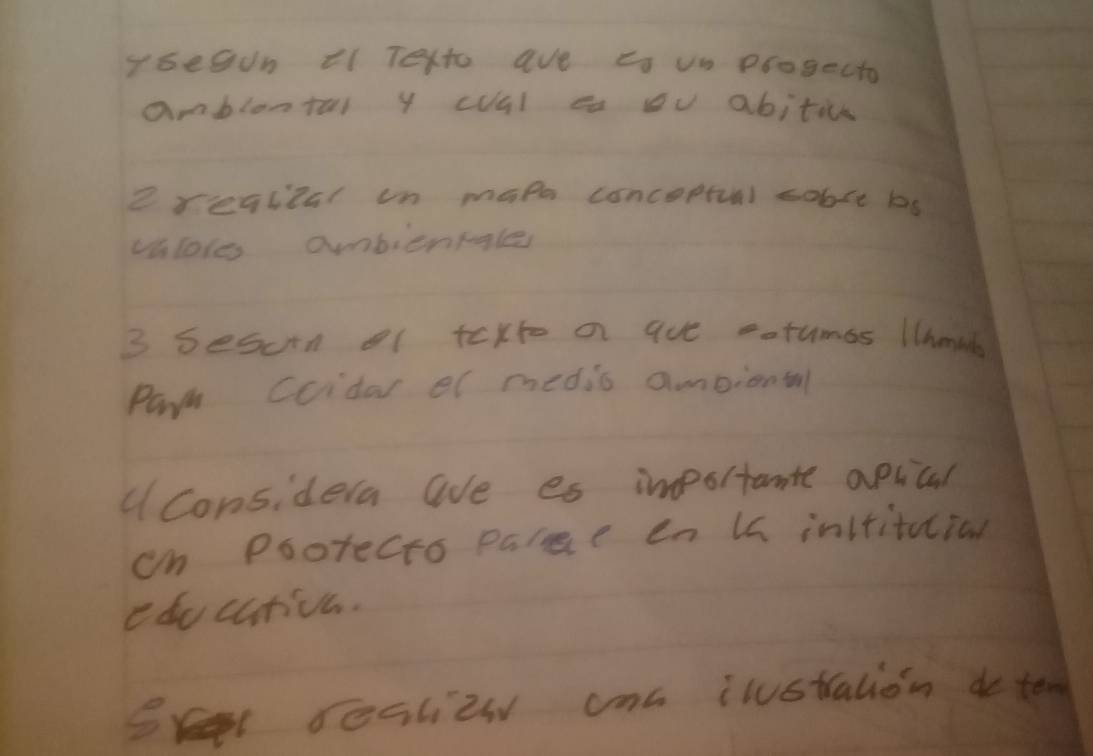 1 segun el Texto que es un progecto
ambiontal y cual es su abitiv
2 realizar un mapa conceptual sobre los
valores ambientales
3 Segun el texto a que estamos llamado
Para Ccidar el medio ambiental
4 Considera que es importante aplicar
un Protecto en la institucion
educativa.
5 realizar una ilustralión de tem